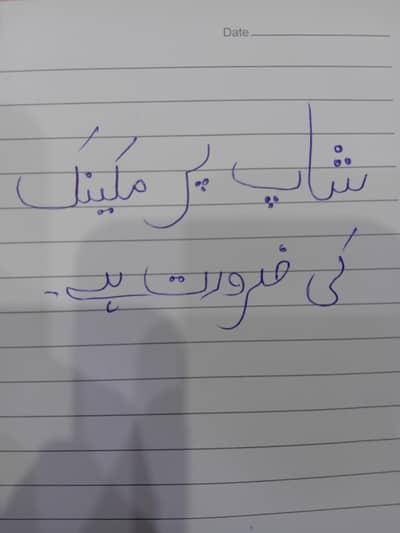 Date
شاپ پر مکینک
کی ضرورت ہے۔